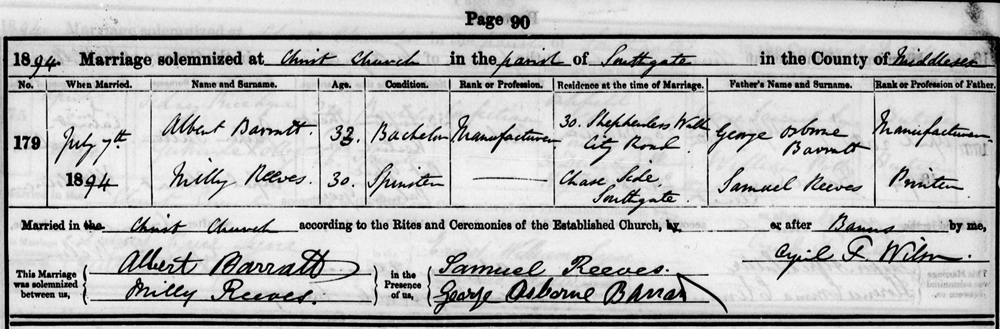 Page 90
1894. Marriage solemnized at Christ Church in the parish of Southgate in the County of Middlesex
No. When Married. Name and Surname. Age. Condition. Rank or Profession. Residence at the time of Marriage. Father's Name and Surname. Rank or Profession of Father.
179 July 7th 1894
Albert Barratt. 33. Bachelor Manufacturer 30. Shepherdess Walk City Road. George Osborne Barratt Manufacturer
Milly Reeves. 30. Spinster Chase Side, Southgate. Samuel Reeves
Married in the Christ Church according to the Rites and Ceremonies of the Established Church, by or after Banns by me,
This Marriage was solemnized between us, Albert Barratt Milly Reeves. in the Presence of us, Samuel Reeves. George Osborne Barratt